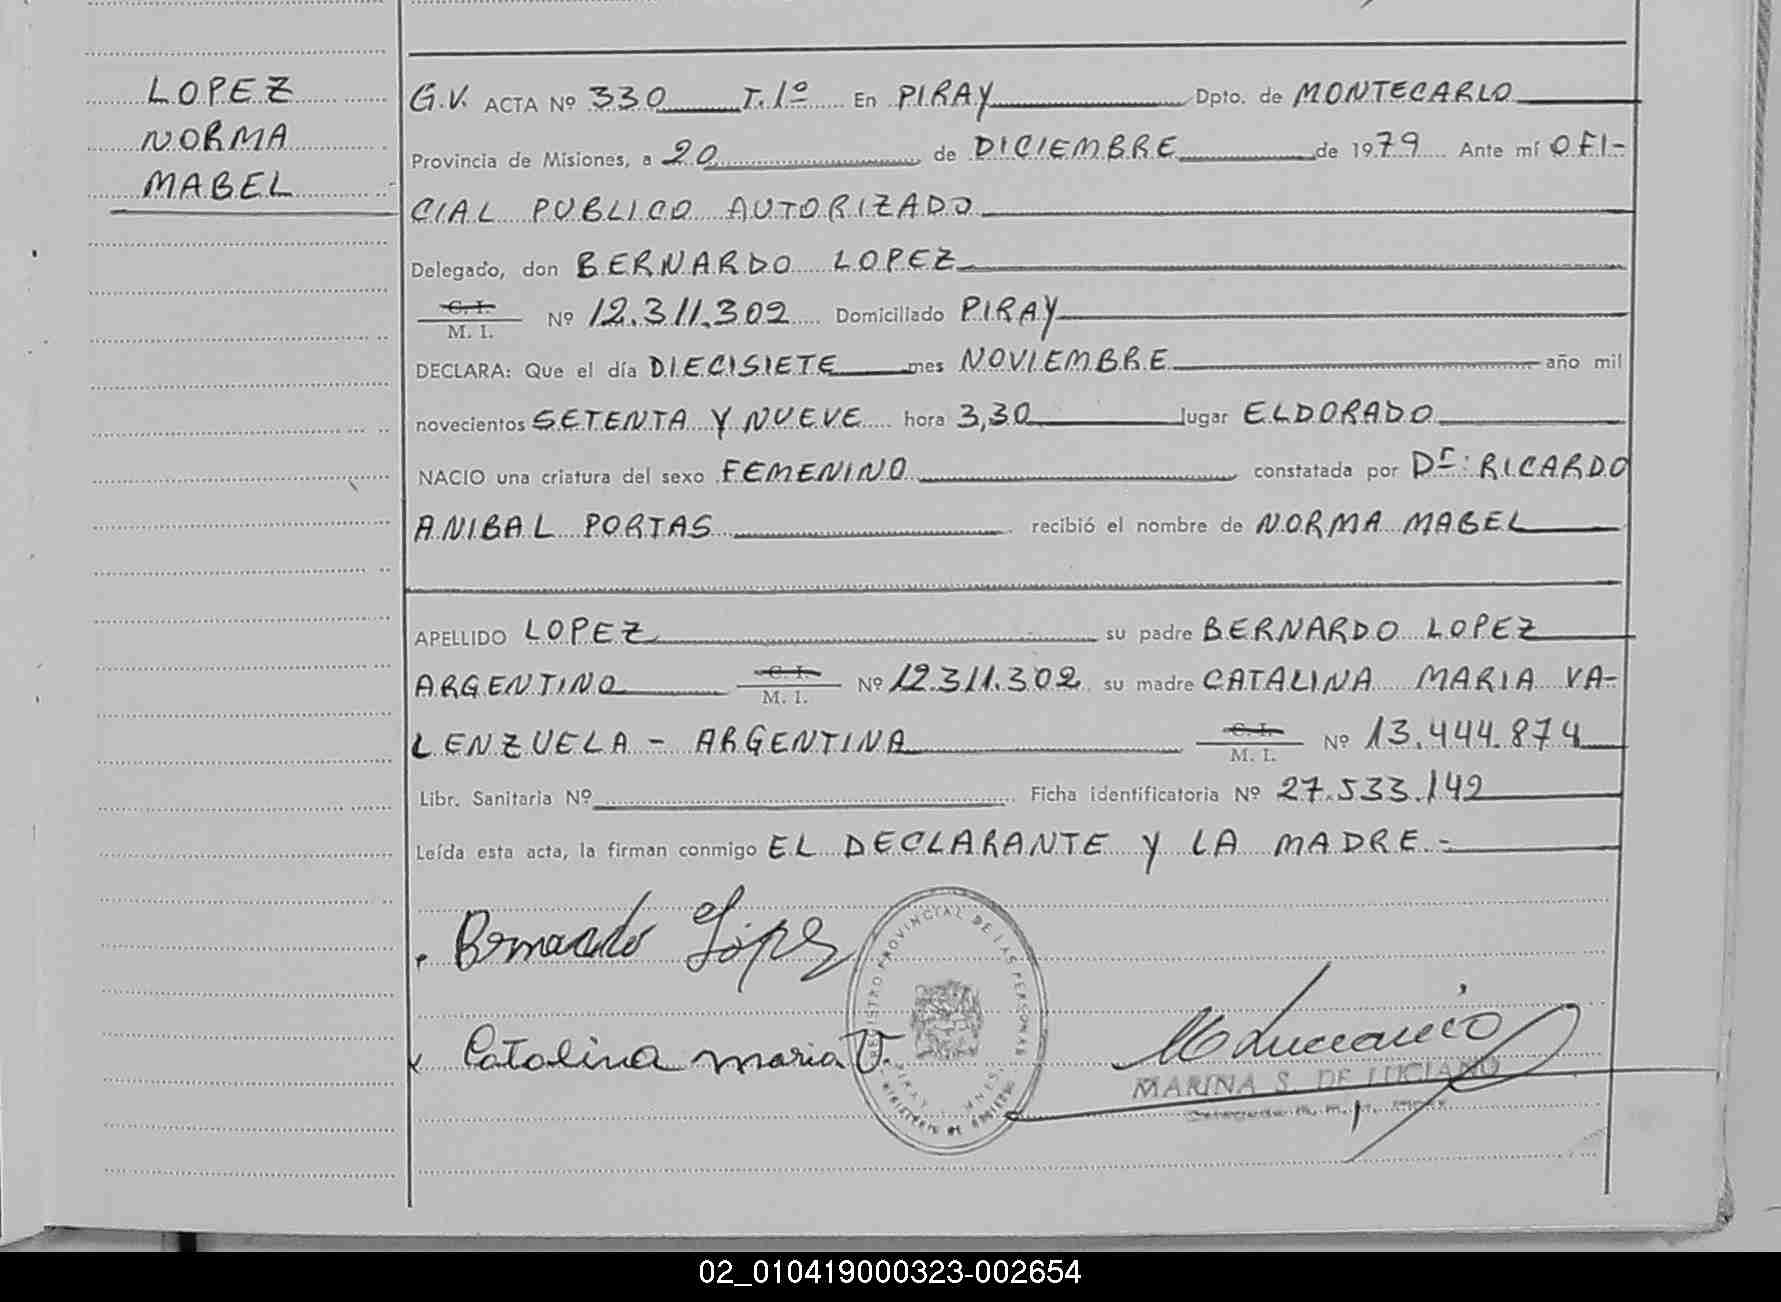 LOPEZ
NORMA
MABEL
G.V. ACTA Nº 330 T. 1º En PIRAY Dpto. de MONTECARLO
Provincia de Misiones, a 20 de DICIEMBRE de 1979 Ante mí OFI-
CIAL PUBLICO AUTORIZADO
Delegado, don BERNARDO LOPEZ
C. I.
M. I. Nº 12.311.302 Domiciliado PIRAY
DECLARA: Que el día DIECISIETE mes NOVIEMBRE año mil
novecientos SETENTA Y NUEVE hora 3,30 lugar ELDORADO
NACIO una criatura del sexo FEMENINO constatada por Dr: RICARDO
ANIBAL PORTAS recibió el nombre de NORMA MABEL
APELLIDO LOPEZ su padre BERNARDO LOPEZ
ARGENTINO C. I. M. I. Nº 12.311.302 su madre CATALINA MARIA VA-
LENZUELA - ARGENTINA C. I. M. I. Nº 13.444.874
Libr. Sanitaria Nº Ficha identificatoria Nº 27.533.142
Leída esta acta, la firman conmigo EL DECLARANTE Y LA MADRE.-
Bernardo López
Catalina maria V.
REGISTRO PROVINCIAL DE LAS PERSONAS
PIRAY MNES.
MINISTERIO DE GOBIERNO
MARINA S. DE LUCIANO
02_010419000323-002654